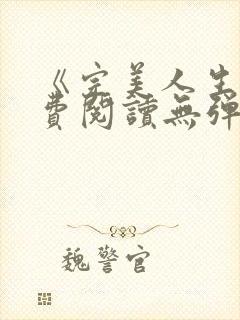 《完美人生
費閱讀無彈
魏警官